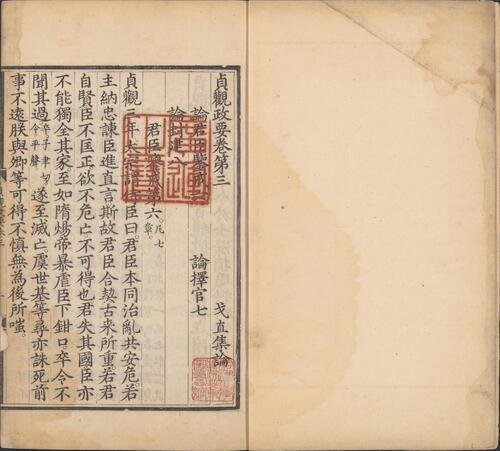 貞觀政要卷第三
戈直集論
論君臣鑒戒六
論擇官七
論封建八
君臣鑒戒第六 凡七章
貞觀三年太宗謂侍臣曰君臣本同治亂共安危若
主納忠諫臣進直言斯故君臣合契古來所重若君
自賢臣不匡正欲不危亡不可得也君失其國臣亦
不能獨全其家至如隋煬帝暴虐臣下鉗口卒令不
聞其過 卒子聿切令平聲 遂至滅亡虞世基等尋亦誅死前
事不遠朕與卿等可得不慎無為後所嗤